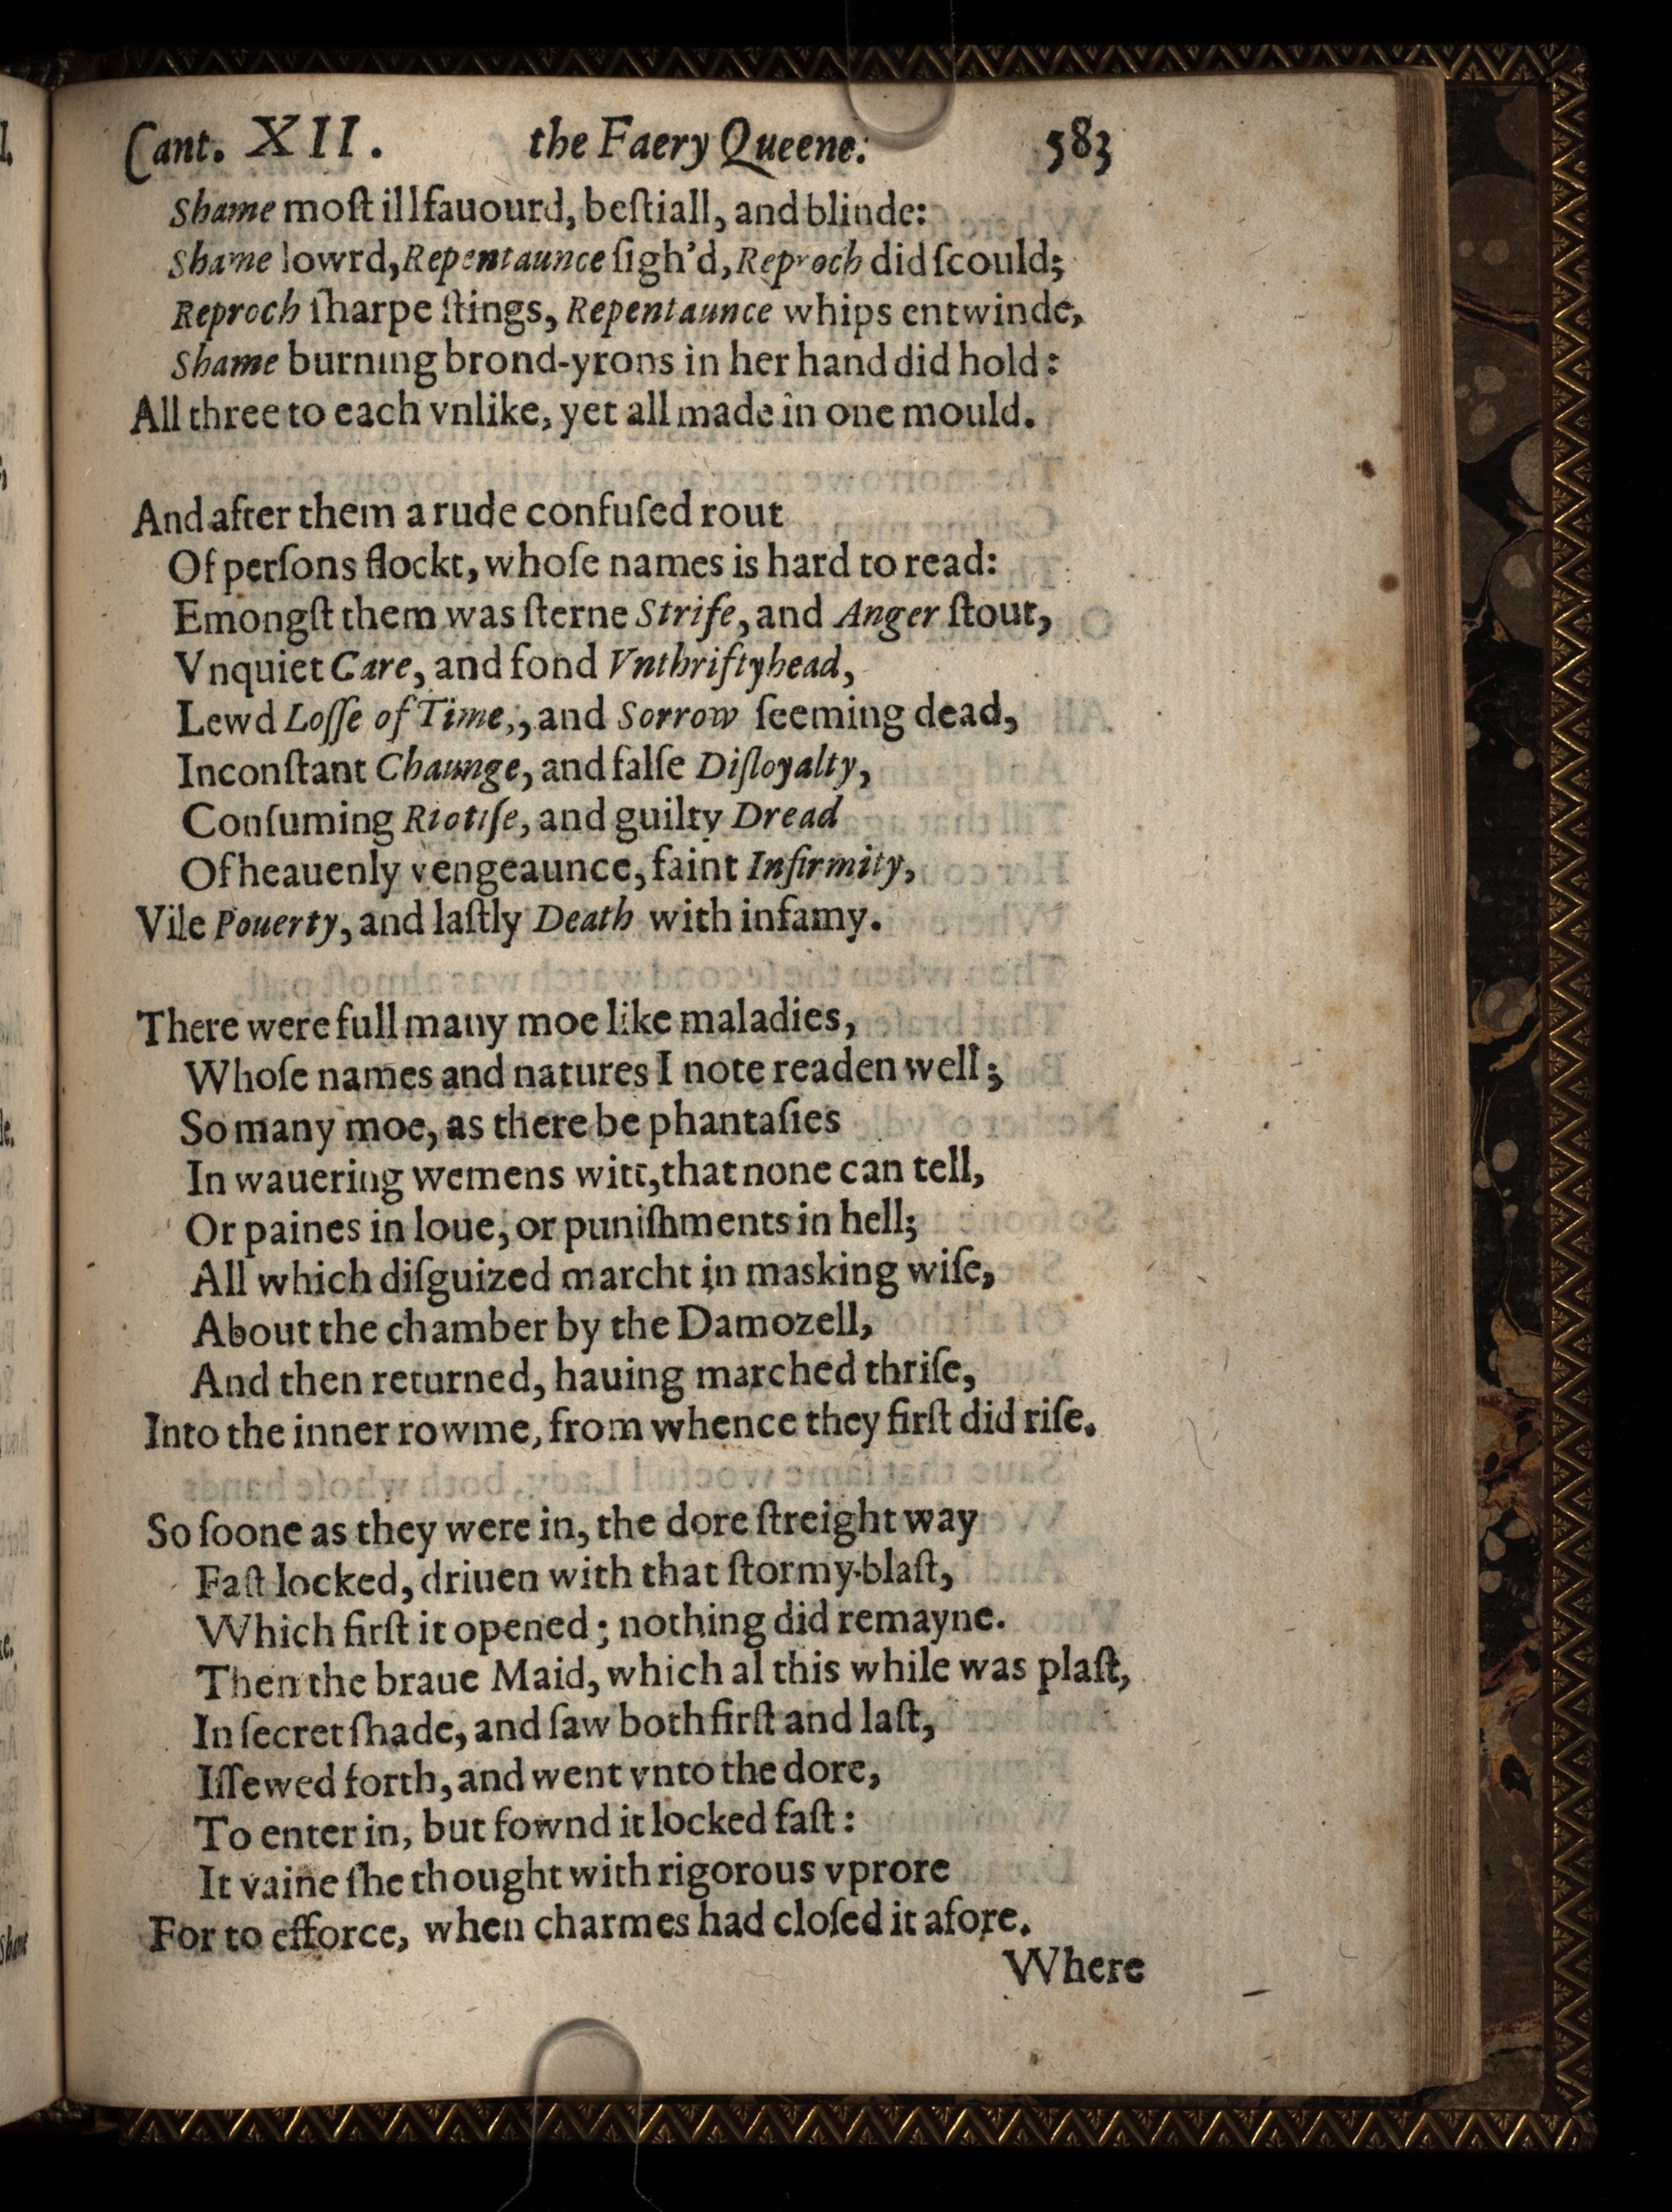 Cant. XII. the Faery Queene. 583
Shame moſt illfauourd, beſtiall, and blinde:
Shame lowrd, Repentaunce ſigh'd, Reproch did ſcould;
Reproch ſharpe ſtings, Repentaunce whips entwinde,
Shame burning brond-yrons in her hand did hold:
All three to each vnlike, yet all made in one mould.
And after them a rude confuſed rout
Of perſons flockt, whoſe names is hard to read:
Emongſt them was ſterne Strife, and Anger ſtout,
Vnquiet Care, and fond Vnthriftyhead,
Lewd Loſſe of Time,, and Sorrow ſeeming dead,
Inconſtant Chaunge, and falſe Diſloyalty,
Conſuming Riotiſe, and guilty Dread
Of heauenly vengeaunce, faint Infirmity,
Vile Pouerty, and laſtly Death with infamy.
There were full many moe like maladies,
Whoſe names and natures I note readen well;
So many moe, as there be phantaſies
In wauering wemens witt, that none can tell,
Or paines in loue, or puniſhments in hell;
All which diſguized marcht in masking wiſe,
About the chamber by the Damozell,
And then returned, hauing marched thriſe,
Into the inner rowme, from whence they firſt did riſe.
So ſoone as they were in, the dore ſtreight way
Faſt locked, driuen with that ſtormy blaſt,
Which firſt it opened; nothing did remayne.
Then the braue Maid, which al this while was plaſt,
In ſecret ſhade, and ſaw both firſt and laſt,
Iſſewed forth, and went vnto the dore,
To enter in, but fownd it locked faſt:
It vaine ſhe thought with rigorous vprore
For to efforce, when charmes had cloſed it afore.
Where